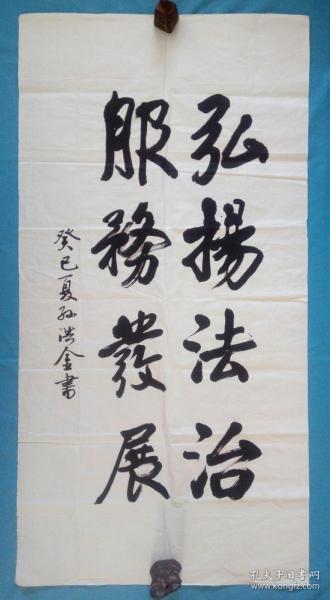 弘揚法治
服務發展
癸巳夏孙洪金書
孔夫子旧书网
www.kongfz.com